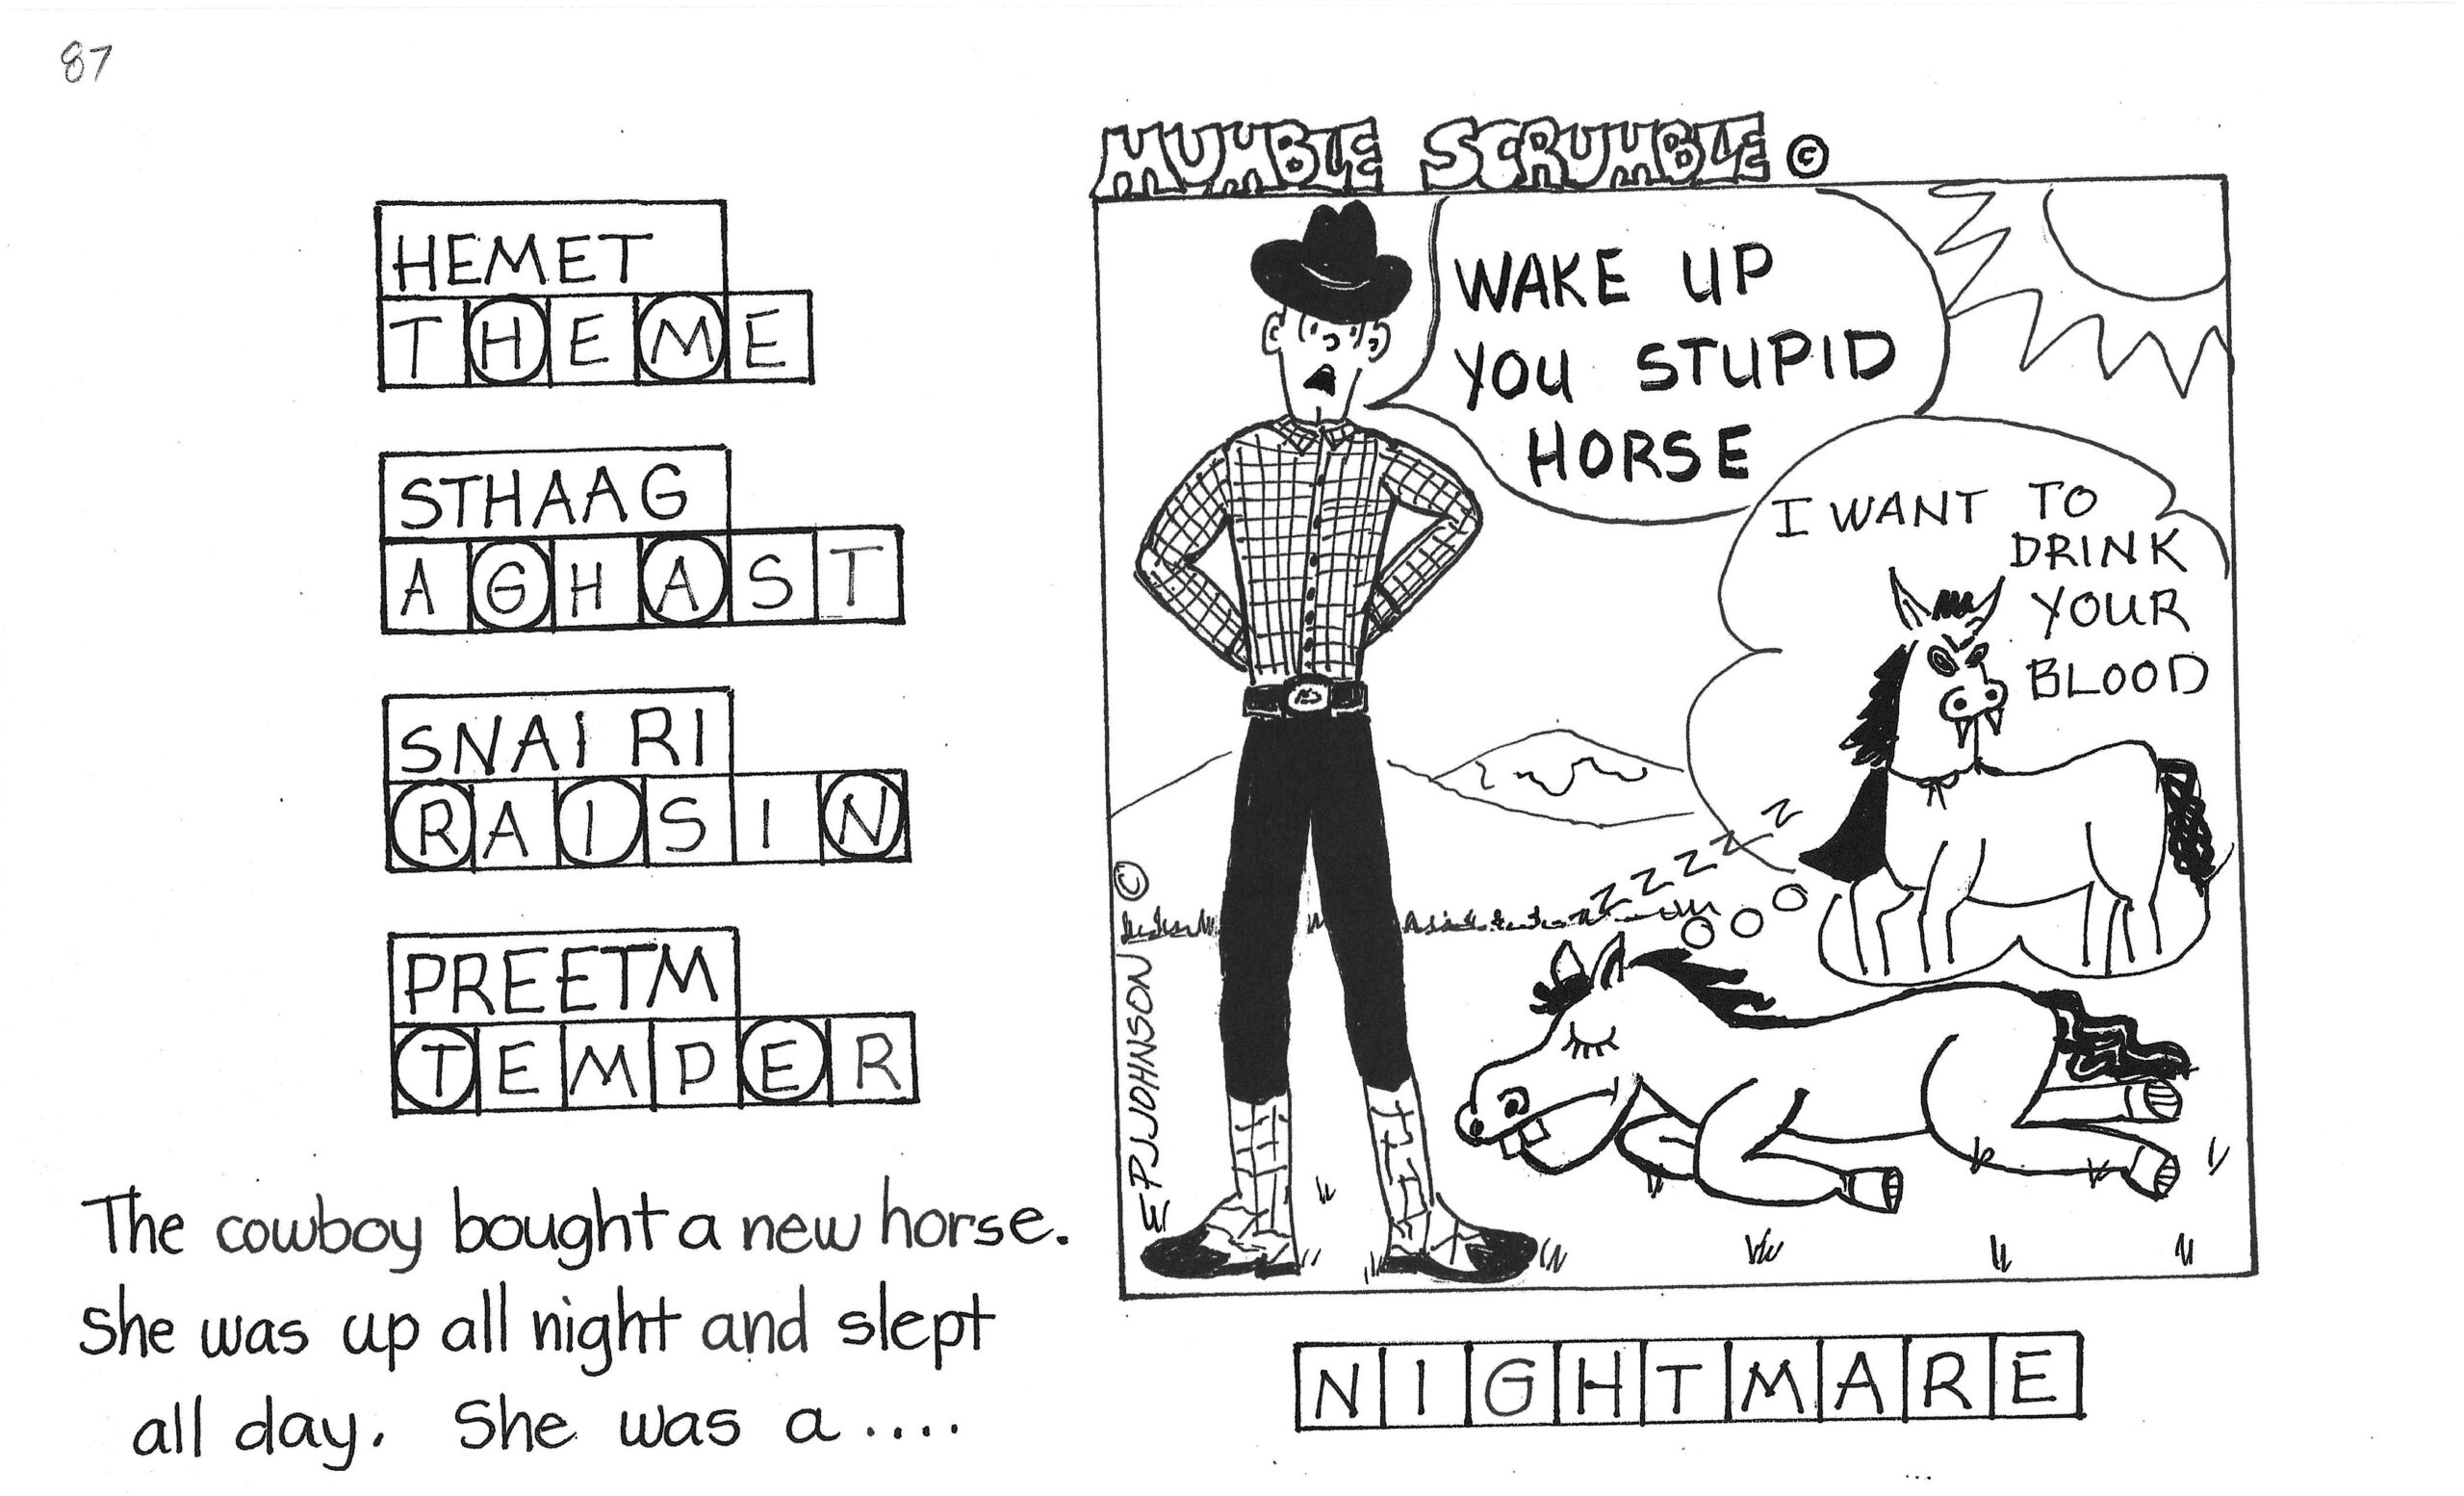 87
MUMBLE SCRUMBLE ©
HEMET
THEME
STHAAG
AGHAST
SNAIRI
RAISIN
PREETM
TEMPER
The cowboy bought a new horse.
She was up all night and slept
all day. She was a....
WAKE UP
YOU STUPID
HORSE
I WANT TO
DRINK
YOUR
BLOOD
Z Z Z Z Z Z
EPJJOHNSON ©
NIGHTMARE